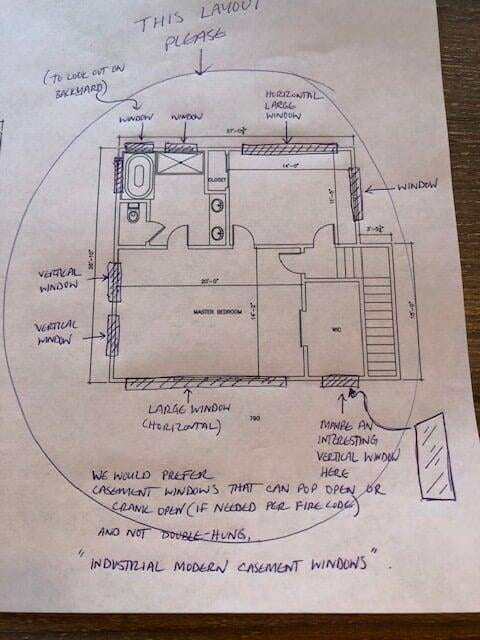 THIS LAYOUT
PLEASE
(TO LOOK OUT ON
BACKYARD)
WINDOW
WINDOW
HORIZONTAL
LARGE
WINDOW
CLOSET
14'-0"
WINDOW
VERTICAL
WINDOW
20'-0"
14'-2"
15'-0"
MASTER BEDROOM
WIC
VERTICAL
WINDOW
LARGE WINDOW
(HORIZONTAL)
790
MAYBE AN
INTERESTING
VERTICAL WINDOW
HERE
WE WOULD PREFER
CASEMENT WINDOWS THAT CAN POP OPEN OR
CRANK OPEN (IF NEEDED PER FIRE CODE)
AND NOT DOUBLE-HUNG.
"INDUSTRIAL MODERN CASEMENT WINDOWS".